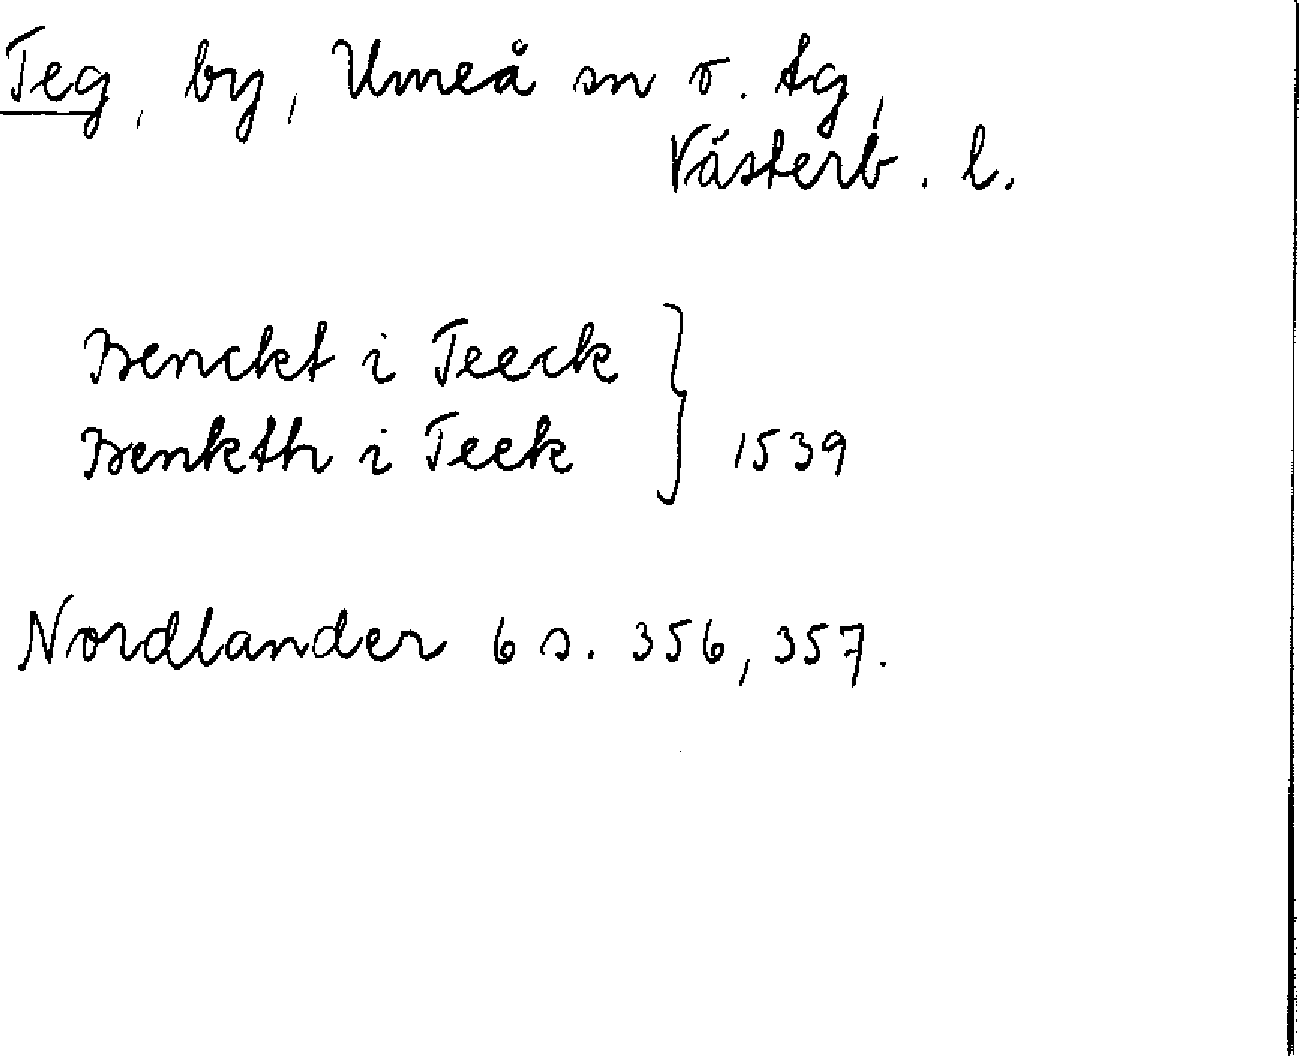 Teg, by, Umeå sn o. tg,
Västerb. l.
Benckt i Teeck
Benkth i Teek } 1539
Nordlander 6 s. 356, 357.